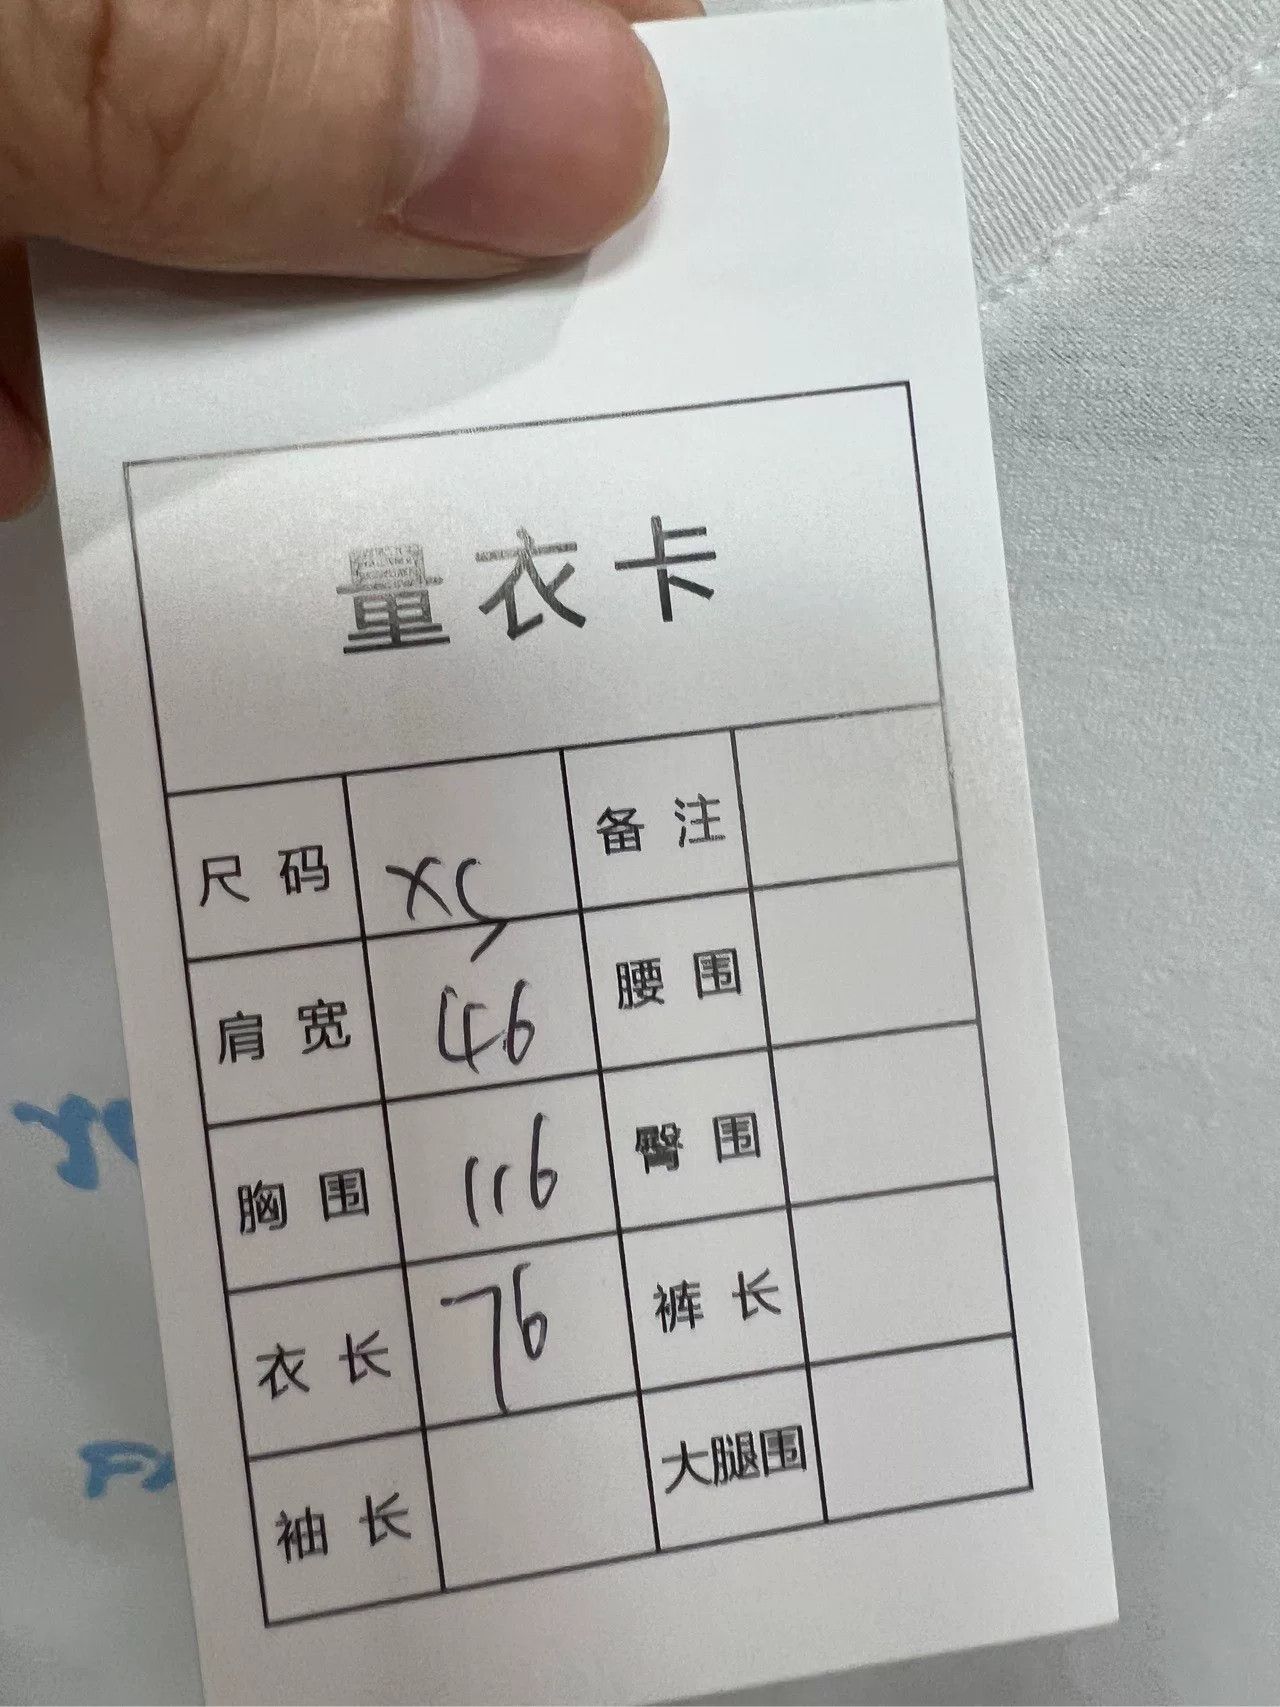 量衣卡
尺码 XS 备注
肩宽 46 腰围
胸围 116 臀围
衣长 76 裤长
袖长 大腿围